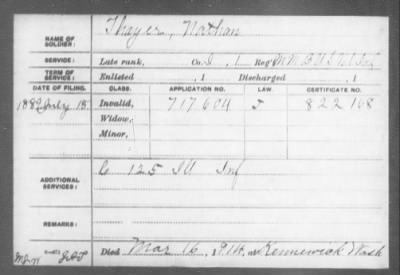 NAME OF SOLDIER: Thayer, Nathan
SERVICE: Late rank, Co. I, 1 Reg't M M B U S Vol Inf
TERM OF SERVICE: Enlisted , 1 Discharged , 1
DATE OF FILING. CLASS. APPLICATION NO. LAW. CERTIFICATE NO.
1889 July 15 Invalid, 717604 J 822168
Widow,
Minor,
ADDITIONAL SERVICES: C 125 Ill Inf
REMARKS:
Died Mar 16, 1914, at Kennewick Wash